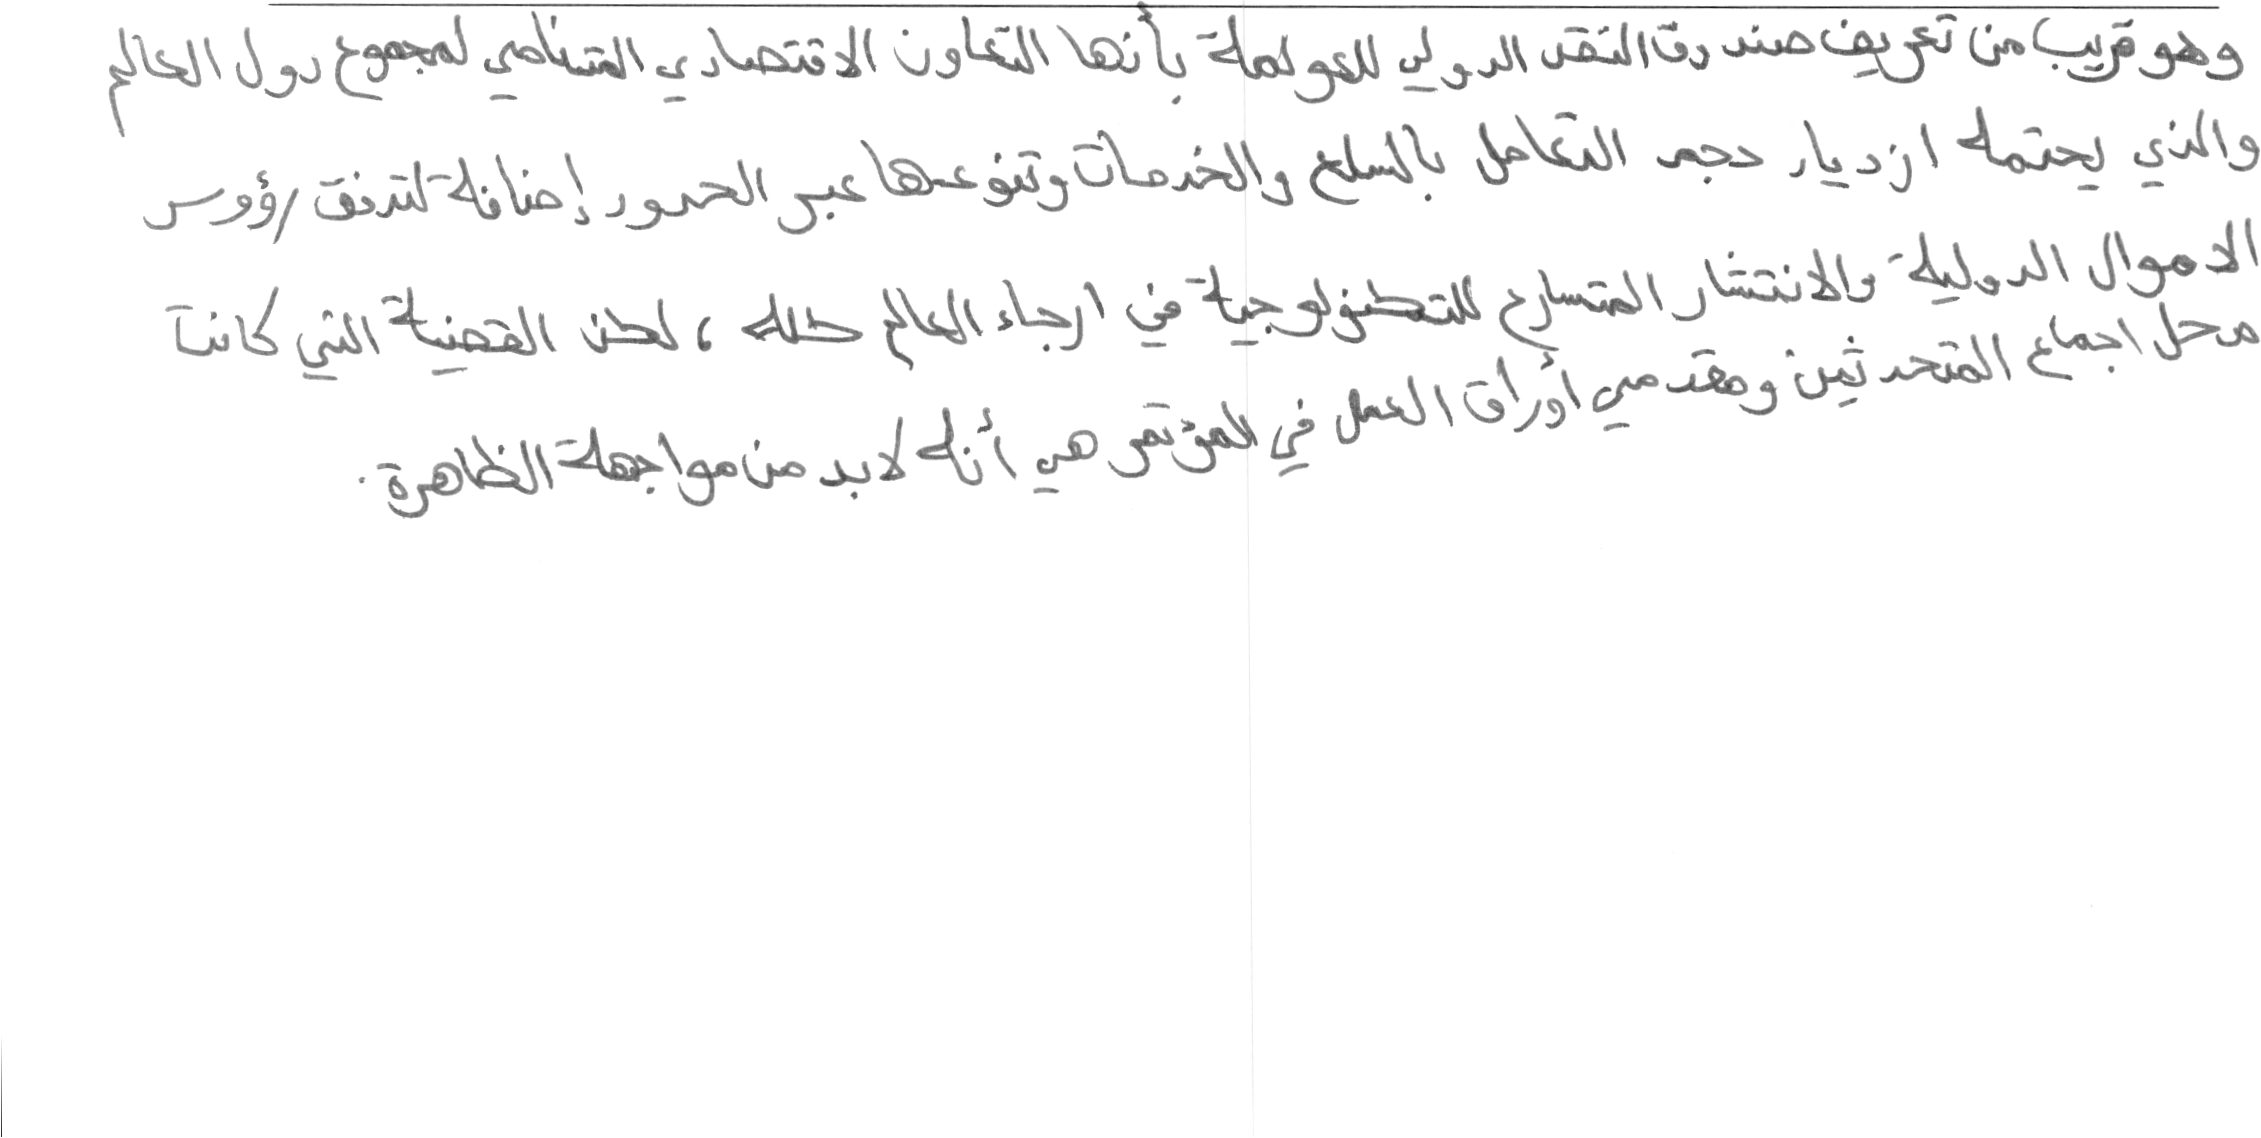 وهو قريب من تعريف صندوق النقد الدولي للعولمة بأنها التعاون الاقتصادي المتنامي لمجموع دول العالم
والذي يحتمه ازدياد حجم التعامل بالسلع والخدمات وتنوعها عبر الحدود إضافة لتدفق رؤوس
الاموال الدولية والانتشار المتسارع للتكنولوجية في ارجاء العالم كله ، لكن القضية التي كانت
محل اجماع المتحدثين ومقدمي أوراق العمل في المؤتمر هي أنه لابد من مواجهة الظاهرة .